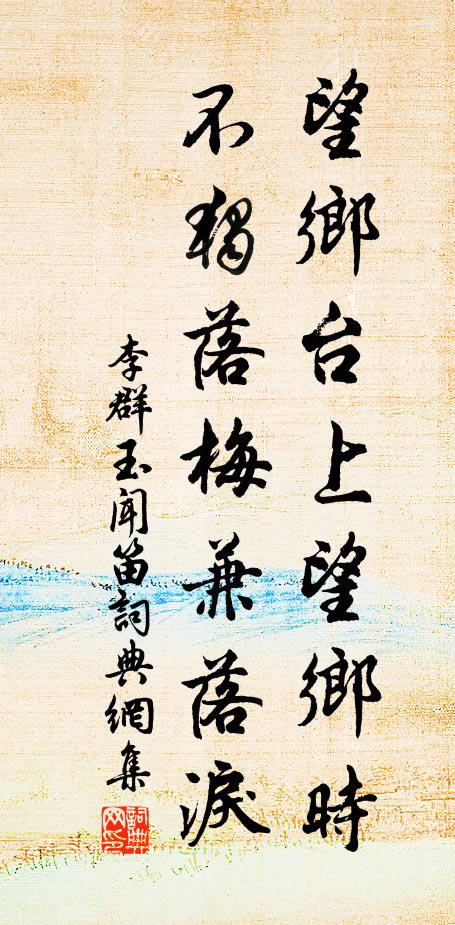 望鄉台上望鄉時
不獨落梅兼落淚
李群玉聞笛詞典網集
詞典网印